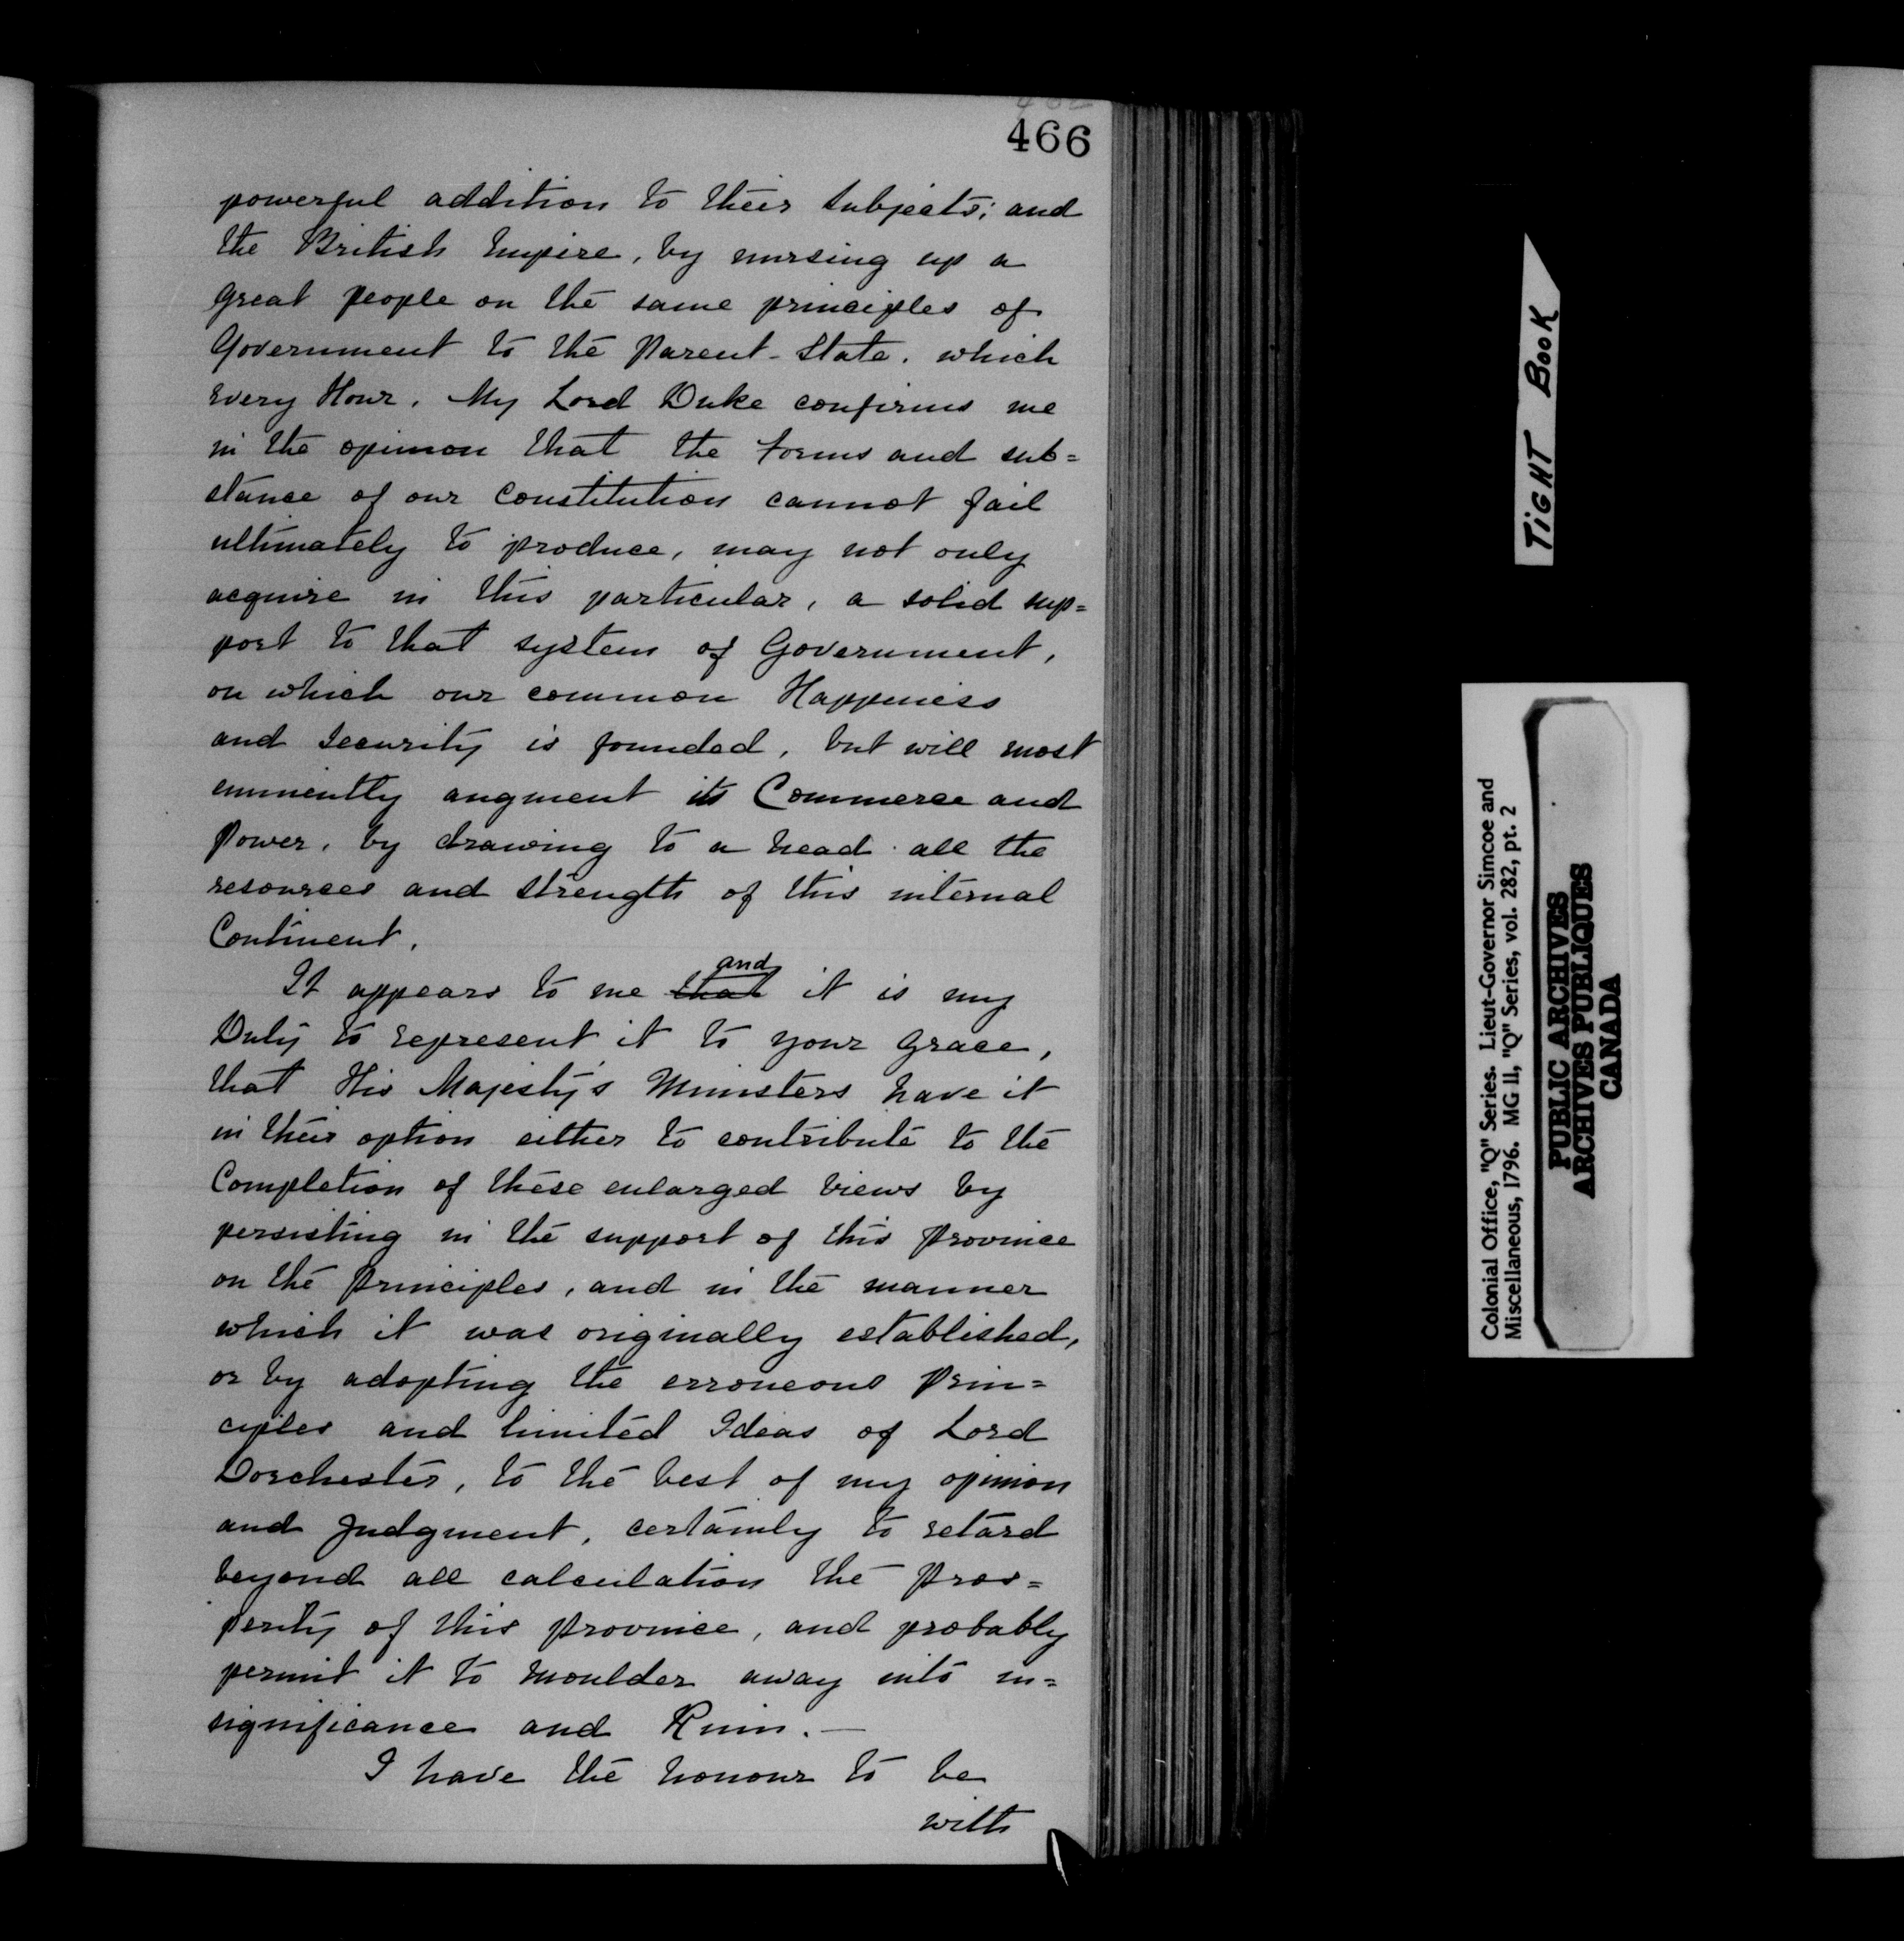 466
powerful addition to their subjects; and
the British Empire, by nursing up a
great people on the same principles of
Government to the Parent-State, which
every Hour, My Lord Duke confirms me
in the opinion that the forms and sub=
stance of our Constitution cannot fail
ultimately to produce, may not only
acquire in this particular, a solid sup=
port to that system of Government,
on which our common Happiness
and Security is founded, but will most
eminently augment its Commerce and
Power, by drawing to a head all the
resources and strength of this internal
Continent.
and
It appears to me that it is my
Duty to represent it to your Grace,
that His Majesty's Ministers have it
in their option either to contribute to the
Completion of these enlarged views by
persisting in the support of this Province
on the Principles, and in the manner
which it was originally established,
or by adopting the erroneous Prin=
ciples and limited Ideas of Lord
Dorchester, to the best of my opinion
and Judgment, certainly to retard
beyond all calculation the Pros=
perity of this Province, and probably
permit it to moulder away into in=
significance and Ruin. —
I have the honour to be
with
TIGHT BOOK
Colonial Office, "Q" Series. Lieut-Governor Simcoe and
Miscellaneous, 1796. MG 11, "Q" Series, vol. 282, pt. 2
PUBLIC ARCHIVES
ARCHIVES PUBLIQUES
CANADA